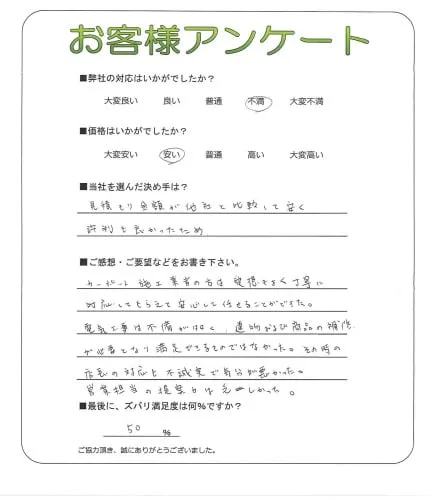 お客様アンケート
■弊社の対応はいかがでしたか?
大変良い 良い 普通 不満 大変不満
■価格はいかがでしたか?
大変安い 安い 普通 高い 大変高い
■当社を選んだ決め手は?
見積もり金額が他社と比較して安く
評判も良かったため
■ご感想・ご要望などをお書き下さい。
カーポート施工業者の方は愛想もよく丁寧に
対応してもらえて安心して任せることができた。
電気工事は不備がひどく、建物および商品の補修
が必要となり満足できるものではなかった。その時の
店長の対応も不誠実で気分が悪かった。
営業担当の提案力は
■最後に、ズバリ満足度は何%ですか?
50 %
ご協力頂き、誠にありがとうございました。